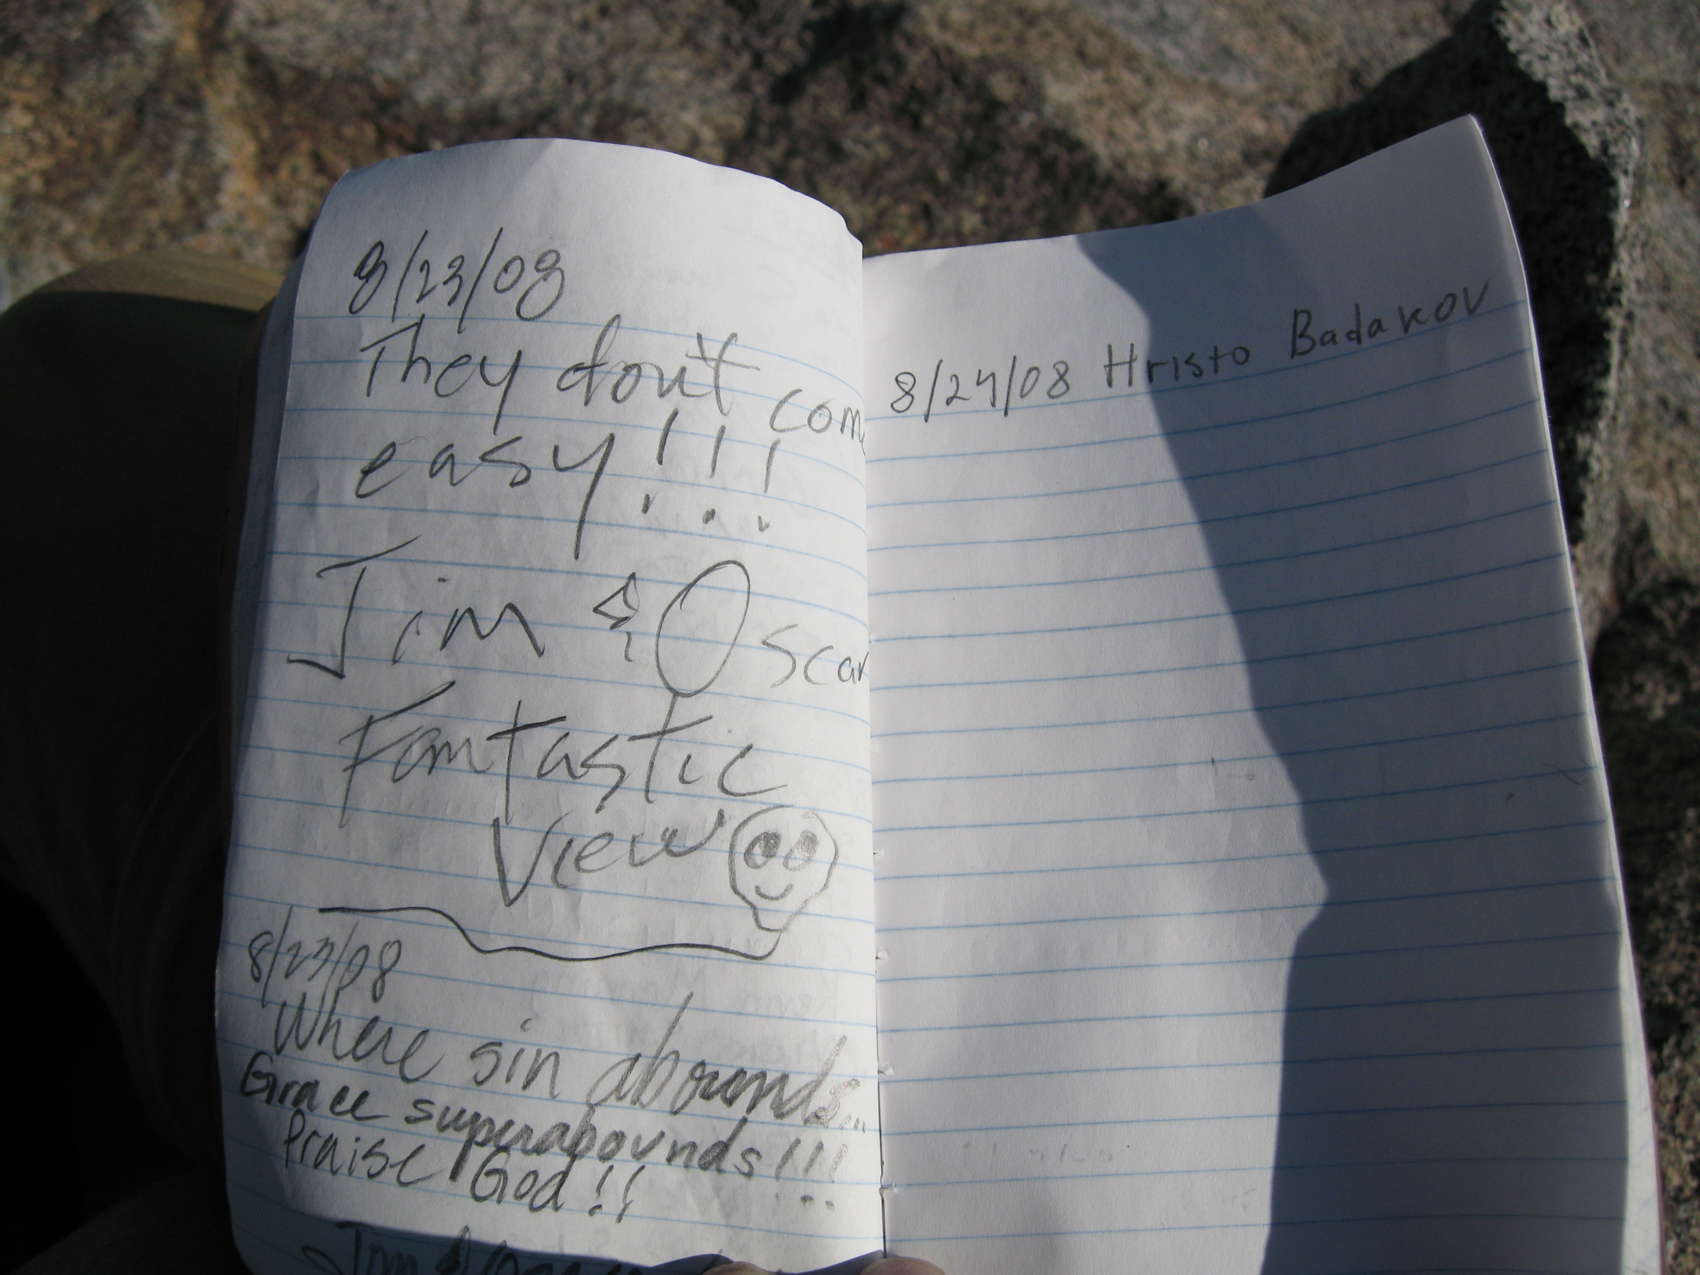 8/23/08
They don't com
easy!!!
Jim & Oscar
Fantastic
View
8/23/08
Where sin abounds...
Grace superabounds!!!
Praise God!!
Jim &
8/24/08 Hristo Badakov